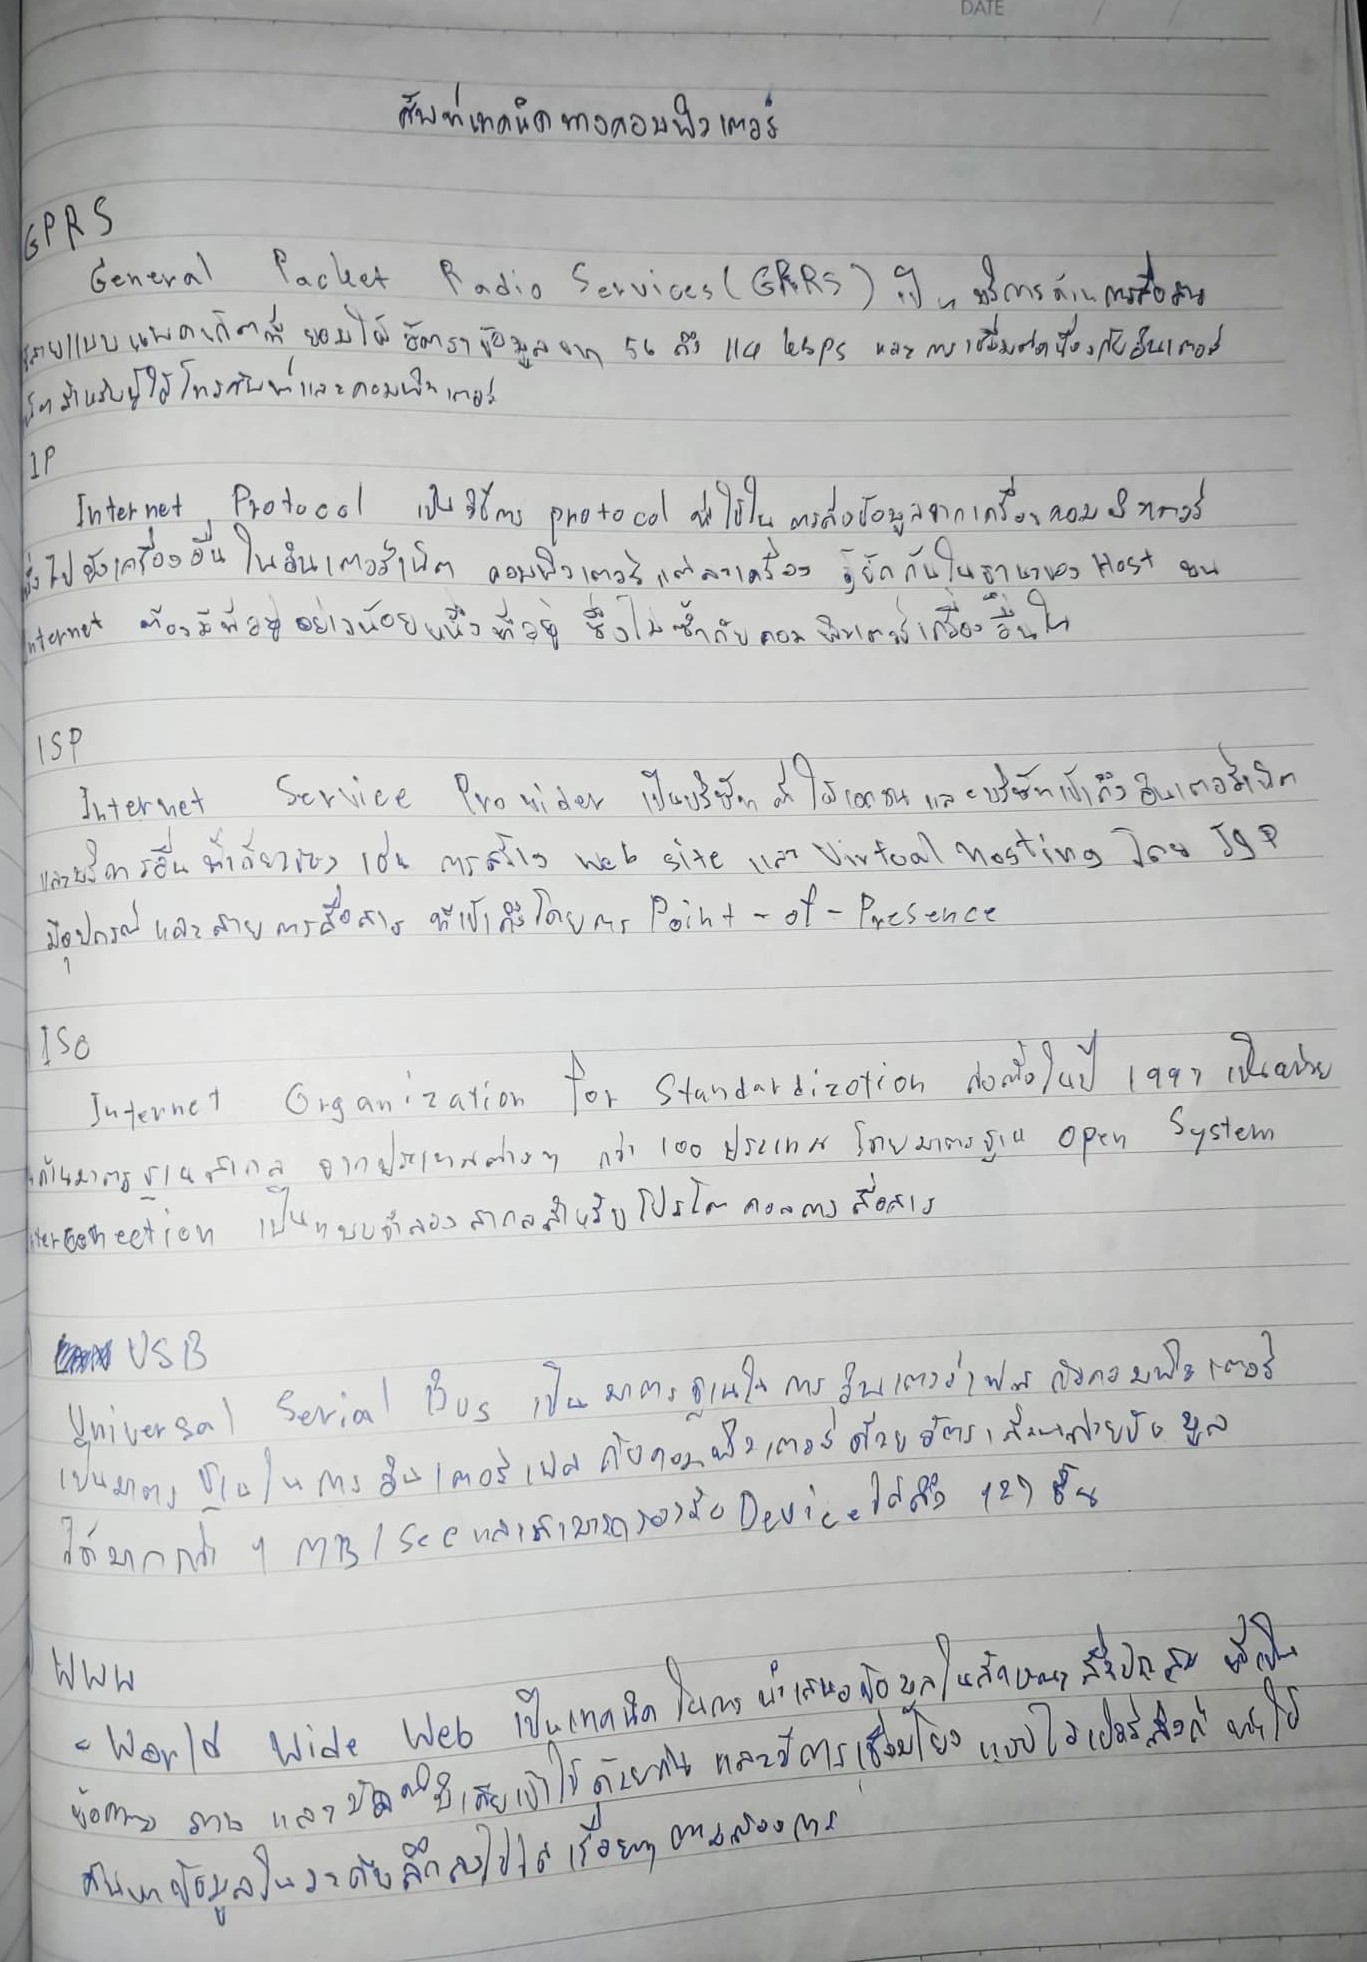 DATE / /
ศัพท์เทคนิคทางคอมพิวเตอร์
GPRS
General Packet Radio Services (GPRS) เป็น บริการด้านการสื่อสาร
แบบแพคเก็ตที่ ยอมให้ อัตราข้อมูลจาก 56 ถึง 114 kbps และการเชื่อมต่อเนื่องกับอินเตอร์
เน็ตสำหรับผู้ใช้โทรศัพท์และคอมพิวเตอร์
IP
Internet Protocol เป็นวิธีการ protocol ที่ใช้ใน การส่งข้อมูลจากเครื่องคอมพิวเตอร์
หนึ่งไปยังเครื่องอื่น ในอินเตอร์เน็ต คอมพิวเตอร์แต่ละเครื่อง รู้จักกันในฐานะของ Host บน
Internet ต้องมีที่อยู่อย่างน้อยหนึ่งที่อยู่ ซึ่งไม่ซ้ำกับคอมพิวเตอร์เครื่องอื่นใน
ISP
Internet Service Provider เป็นบริษัท ที่ให้เอกชน และบริษัทเข้าถึงอินเตอร์เน็ต
และบริการอื่นที่เกี่ยวข้อง เช่น การสร้าง web site และ Virtual hosting โดย ISP
มีอุปกรณ์และสายการสื่อสาร ที่เข้าถึงโดยการ Point-of-Presence
ISO
Internet Organization for Standardization ก่อตั้งในปี 1947 เป็น
ด้านมาตรฐานสากล จากประเทศต่างๆ กว่า 100 ประเทศ โดยมาตรฐาน Open System
Interconnection เป็นแบบจำลองสากลสำหรับโปรโตคอลการสื่อสาร
USB
Universal Serial Bus เป็นมาตรฐานในการอินเตอร์เฟส กับคอมพิวเตอร์
เป็นมาตรฐานในการอินเตอร์เฟส กับคอมพิวเตอร์ด้วยอัตรา
ได้มากกว่า MB/Sec และสามารถรองรับ Device ได้ถึง 127 ชิ้น
WWW
- World Wide Web เป็นเทคนิคในการนำเสนอข้อมูลในลักษณะสื่อประสม ที่เป็น
ข้อความ ภาพ และ เข้าไว้ด้วยกัน และมีการเชื่อมโยง แบบไฮเปอร์ลิงก์ ทำให้
ค้นหาข้อมูลในระดับลึกลงไปได้เรื่อยๆ ตามต้องการ